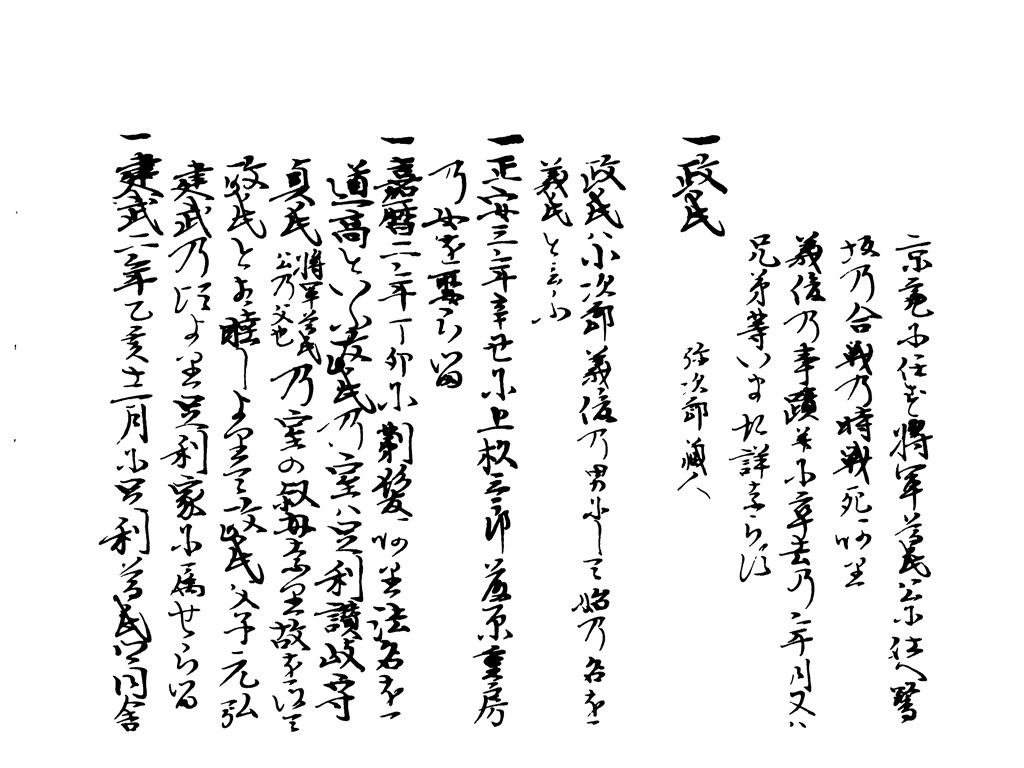 京亮に任す将軍尊氏公に仕へ鷺
坂乃合戦乃時戦死一個里
義俊乃事蹟並に卒去乃年月又ハ
兄弟等いまた詳ならす
一政氏 弥次郎 蔵人
政氏ハ小次郎義俊乃男にして始乃名を
義氏と言ふ
一正安三年辛丑に上杉三郎藤原重房
乃女を娶らる
一嘉暦二年丁卯に剃髪あり法名を
道高といふ政氏乃室ハ足利讃岐守
貞氏 将軍尊氏公乃父也 乃室の叔母なり故を以て
政氏とよ睦しよりて政氏父子元弘
建武乃頃より足利家に属せらる
一建武二年乙亥十一月に足利尊氏公同舎